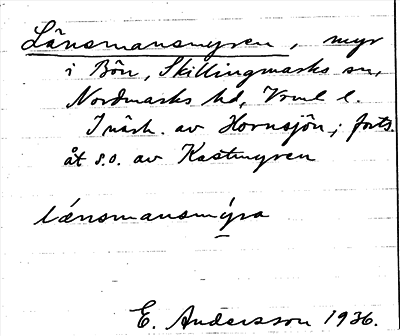 Länsmansmyren, myr
i Bön, Skillingmarks sn,
Nordmarks hd, Vrml l.
I närh. av Hornsjön; forts.
åt s.o. av Kastmyren
lænsmansmýra
E. Andersson 1936.